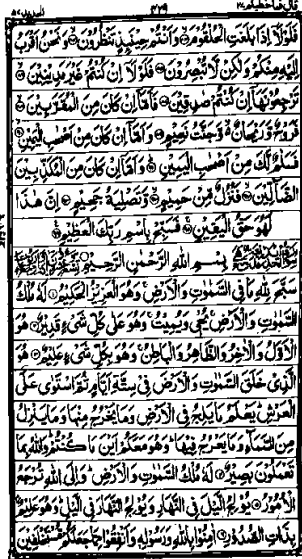 قال فما خطبكم ٢٧ ٤٢٩
فَلَوْلَآ اِذَا بَلَغَتِ الْحُلْقُوْمَ وَاَنْتُمْ حِيْنَئِذٍ تَنْظُرُوْنَ وَنَحْنُ اَقْرَبُ
اِلَيْهِ مِنْكُمْ وَلٰكِنْ لَّا تُبْصِرُوْنَ فَلَوْلَآ اِنْ كُنْتُمْ غَيْرَ مَدِيْنِيْنَ
تَرْجِعُوْنَهَآ اِنْ كُنْتُمْ صٰدِقِيْنَ فَاَمَّآ اِنْ كَانَ مِنَ الْمُقَرَّبِيْنَ
فَرَوْحٌ وَّرَيْحَانٌ وَّجَنَّتُ نَعِيْمٍ وَاَمَّآ اِنْ كَانَ مِنْ اَصْحٰبِ الْيَمِيْنِ
فَسَلٰمٌ لَّكَ مِنْ اَصْحٰبِ الْيَمِيْنِ وَاَمَّآ اِنْ كَانَ مِنَ الْمُكَذِّبِيْنَ
الضَّآلِّيْنَ فَنُزُلٌ مِّنْ حَمِيْمٍ وَّتَصْلِيَةُ جَحِيْمٍ اِنَّ هٰذَا
لَهُوَ حَقُّ الْيَقِيْنِ فَسَبِّحْ بِاسْمِ رَبِّكَ الْعَظِيْمِ
بِسْمِ اللّٰهِ الرَّحْمٰنِ الرَّحِيْمِ
سَبَّحَ لِلّٰهِ مَا فِى السَّمٰوٰتِ وَالْاَرْضِ وَهُوَ الْعَزِيْزُ الْحَكِيْمُ لَهٗ مُلْكُ
السَّمٰوٰتِ وَالْاَرْضِ يُحْيٖ وَيُمِيْتُ وَهُوَ عَلٰى كُلِّ شَىْءٍ قَدِيْرٌ هُوَ
الْاَوَّلُ وَالْاٰخِرُ وَالظَّاهِرُ وَالْبَاطِنُ وَهُوَ بِكُلِّ شَىْءٍ عَلِيْمٌ هُوَ
الَّذِىْ خَلَقَ السَّمٰوٰتِ وَالْاَرْضَ فِىْ سِتَّةِ اَيَّامٍ ثُمَّ اسْتَوٰى عَلَى
الْعَرْشِ يَعْلَمُ مَا يَلِجُ فِى الْاَرْضِ وَمَا يَخْرُجُ مِنْهَا وَمَا يَنْزِلُ
مِنَ السَّمَآءِ وَمَا يَعْرُجُ فِيْهَا وَهُوَ مَعَكُمْ اَيْنَ مَا كُنْتُمْ وَاللّٰهُ بِمَا
تَعْمَلُوْنَ بَصِيْرٌ لَهٗ مُلْكُ السَّمٰوٰتِ وَالْاَرْضِ وَاِلَى اللّٰهِ تُرْجَعُ
الْاُمُوْرُ يُوْلِجُ الَّيْلَ فِى النَّهَارِ وَيُوْلِجُ النَّهَارَ فِى الَّيْلِ وَهُوَ عَلِيْمٌ
بِذَاتِ الصُّدُوْرِ اٰمِنُوْا بِاللّٰهِ وَرَسُوْلِهٖ وَاَنْفِقُوْا مِمَّا جَعَلَكُمْ مُّسْتَخْلَفِيْنَ